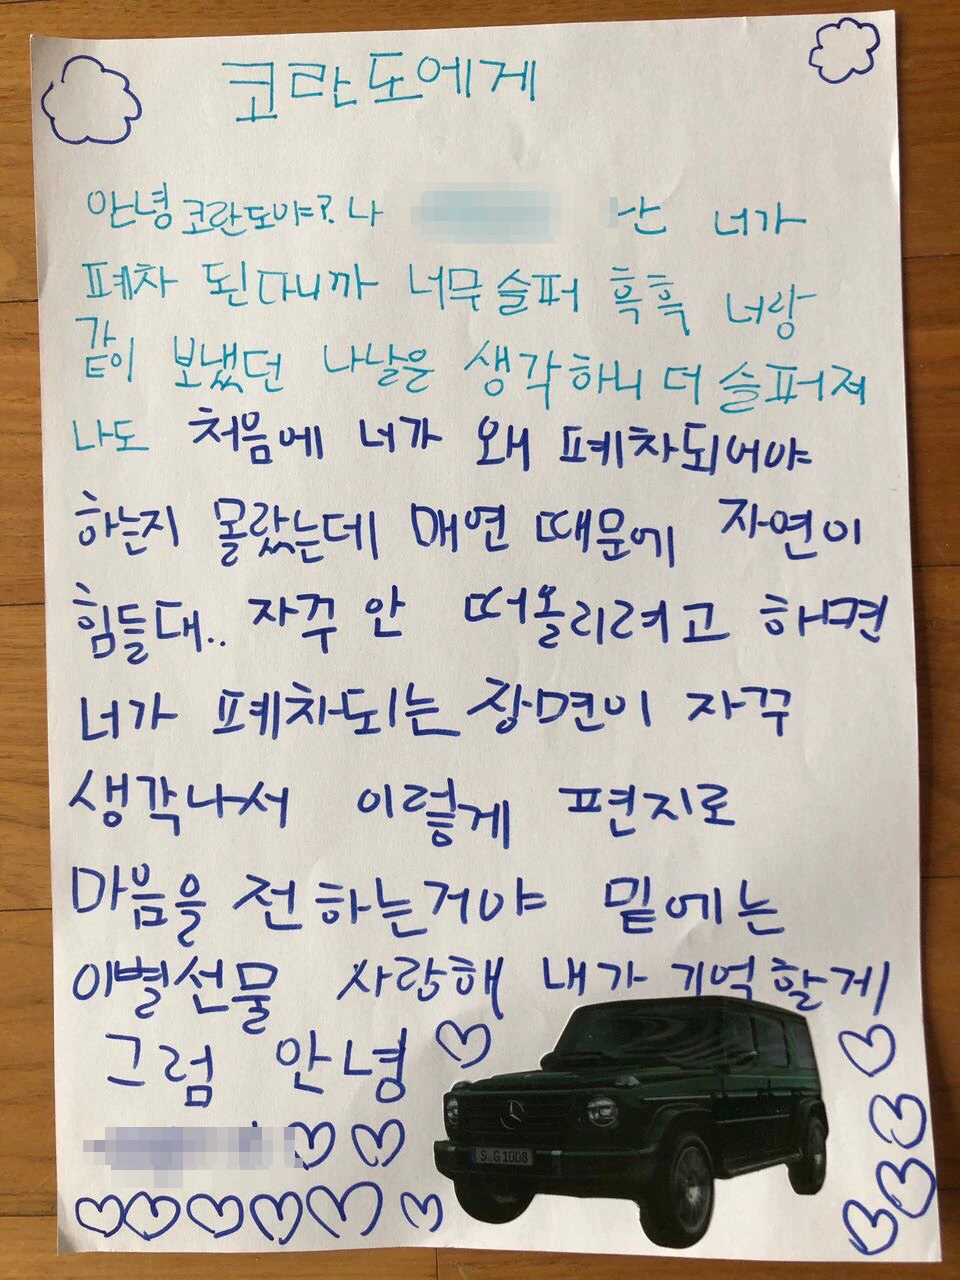 코란도에게
안녕 코란도야? 나 난 너가
폐차 된다니까 너무 슬퍼 흑흑 너랑
같이 보냈던 나날은 생각하니 더 슬퍼져
나도 처음에 너가 왜 폐차되어야
하는지 몰랐는데 매연 때문에 자연이
힘들대.. 자꾸 안 떠올리려고 해면
너가 폐차되는 장면이 자꾸
생각나서 이렇게 편지로
마음을 전하는거야 밑에는
이별선물 사랑해 내가 기억할게
그럼 안녕
S G 1008